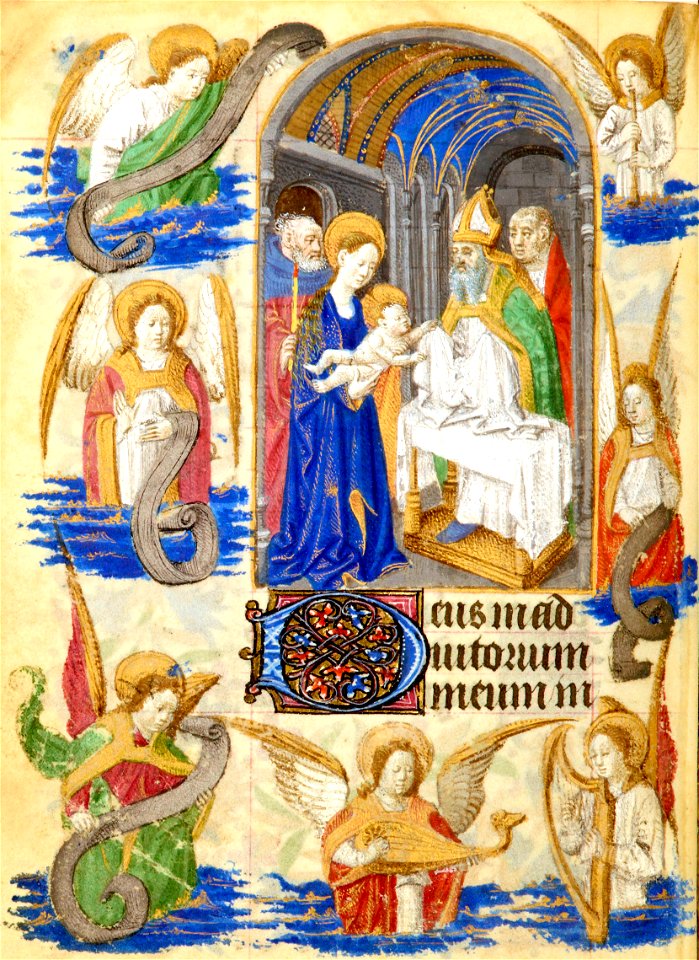 Deus in ad
iutorium
meum in